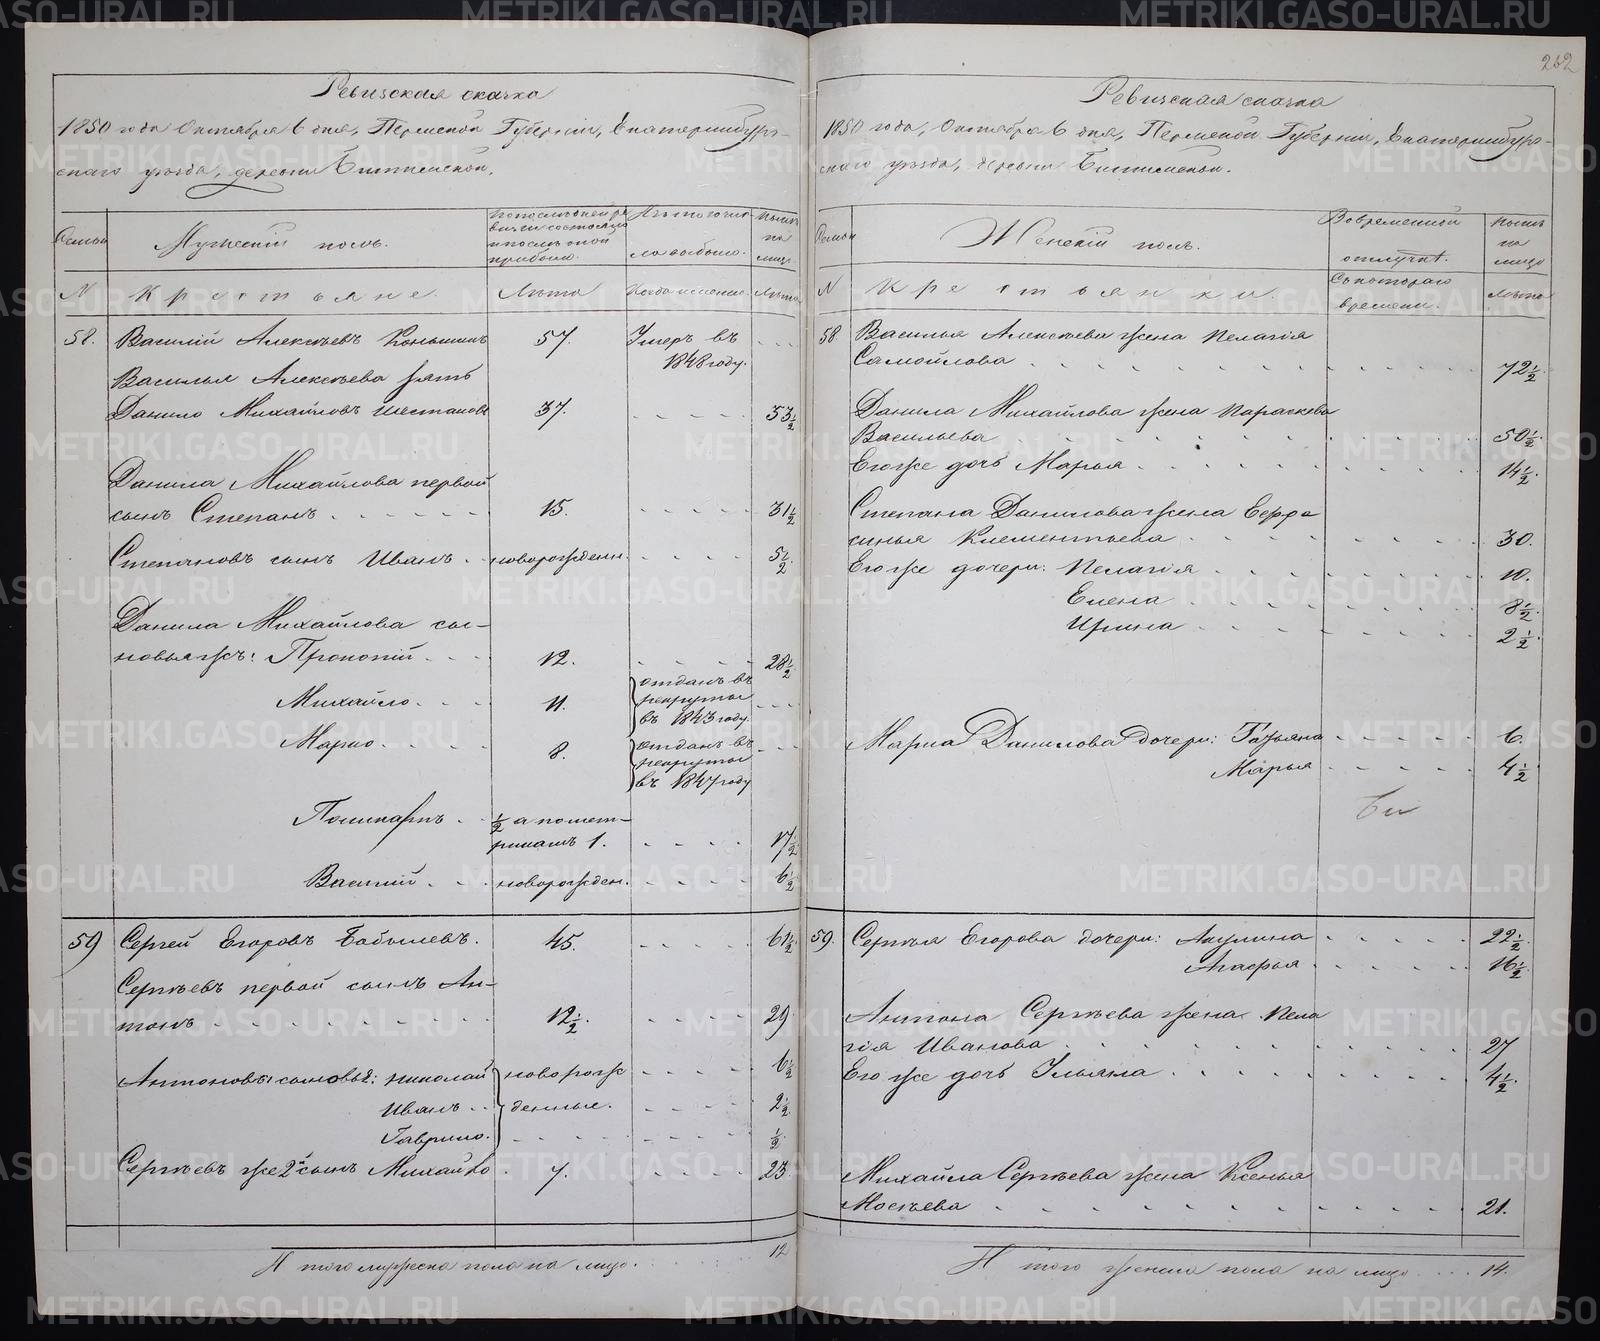 252
Ревизская сказка
1850 года Октября 6 дня, Пермской Губернии, Екатеринбург-
скаго уезда, деревни
Семьи
Мужеский полъ.
По последней ре
визии состояло
и после оной
прибыло.
Изъ того чис-
ла выбыло.
Ныне
на
лицо
N
Крестьяне.
Лета
Когда именно.
Лета
58.
Василий Алексеевъ Коньшинъ
57.
Умеръ въ
1848 году.
Василья Алексеева зять
Данило Михайловъ Шестаковъ
37.
53½
Данила Михайлова первой
сынъ Степанъ
15.
31½
Степановъ сынъ Иванъ
новорожденн.
5½
Данила Михайлова сы-
новья жъ: Прокопий
12.
28½
Михайло
11.
отданъ въ
рекруты
въ 1843 году.
Марко
8.
отданъ въ
рекруты
въ 1847 году
Поликарпъ
½ а по мет-
рикамъ 1.
17½
Василий
новорожден.
6½
59
Сергей Егоровъ Бабышевъ.
45.
61½
Сергеевъ первой сынъ Ан-
тонъ
12½.
29
Антоновы сыновья: Николай
новорож
6½
Иванъ
денные.
2½
Гаврило.
½
Сергеевъ же 2й сынъ Михайло
7.
23
Итого мужеска пола на лицо
12
Ревизская сказка
1850 года, Октября 6 дня, Пермской Губернии, Екатеринбург-
скаго уезда, деревни
Семьи
Женский полъ.
Во временной
отлучке.
Ныне
на
лицо
N
Крестьянки.
Съ котораго
времени.
Лета
58.
Василья Алексеева жена Пелагія
Самойлова
72½
Данила Михайлова жена Парасковья
Васильева
50½
Его же дочь Марья
14½.
Степана Данилова жена Евфро
синья Клементьева
30.
Его же дочери: Пелагія
10.
Елена
8½
Ирина
2½
Марка Данилова дочери: Татьяна
6.
Марья
4½
59.
Сергея Егорова дочери: Акулина
22½
Агафья
16½
Антона Сергеева жена Пела
гія Иванова
27
Его же дочь Ульяна
4½.
Михайла Сергеева жена Ксенья
Мосеева
21.
Итого женска пола на лицо
14.
METRIKI.GASO-URAL.RU